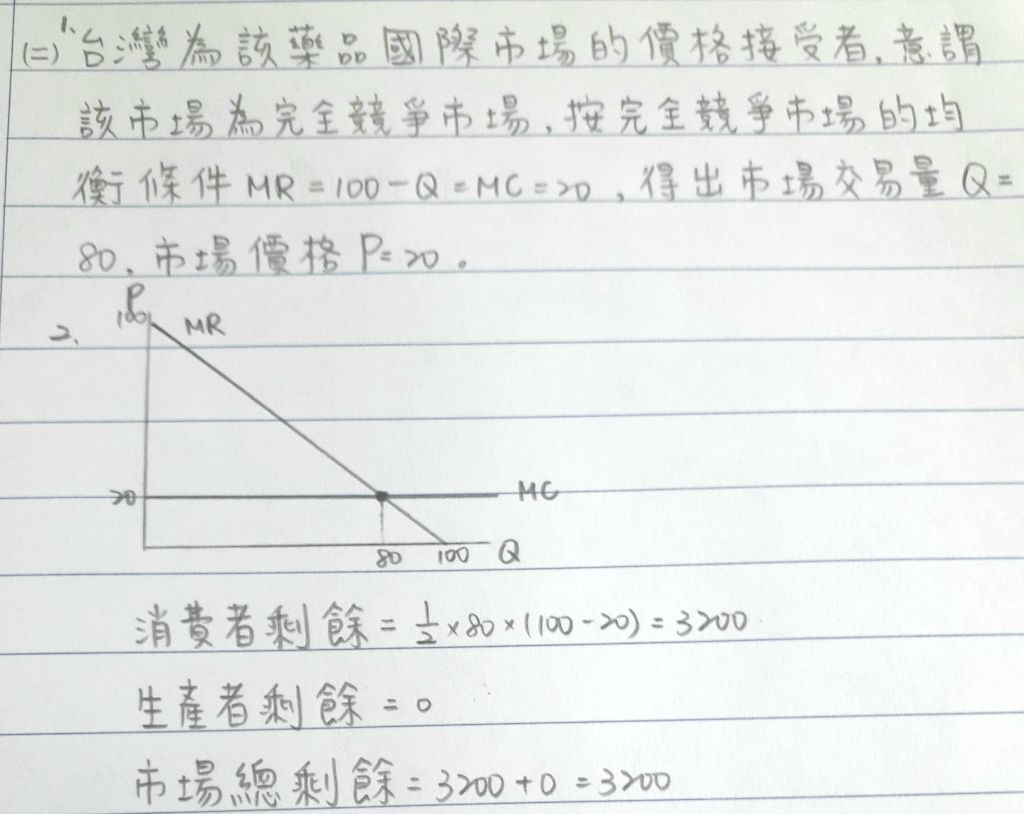 (二) 1. 台灣為該藥品國際市場的價格接受者,意謂
該市場為完全競爭市場,按完全競爭市場的均
衡條件 MR=100-Q=MC=20,得出市場交易量 Q=
80,市場價格 P=20。
2.
P
100
MR
20
MC
80
100
Q
消費者剩餘=½×80×(100-20)=3200
生產者剩餘=0
市場總剩餘=3200+0=3200